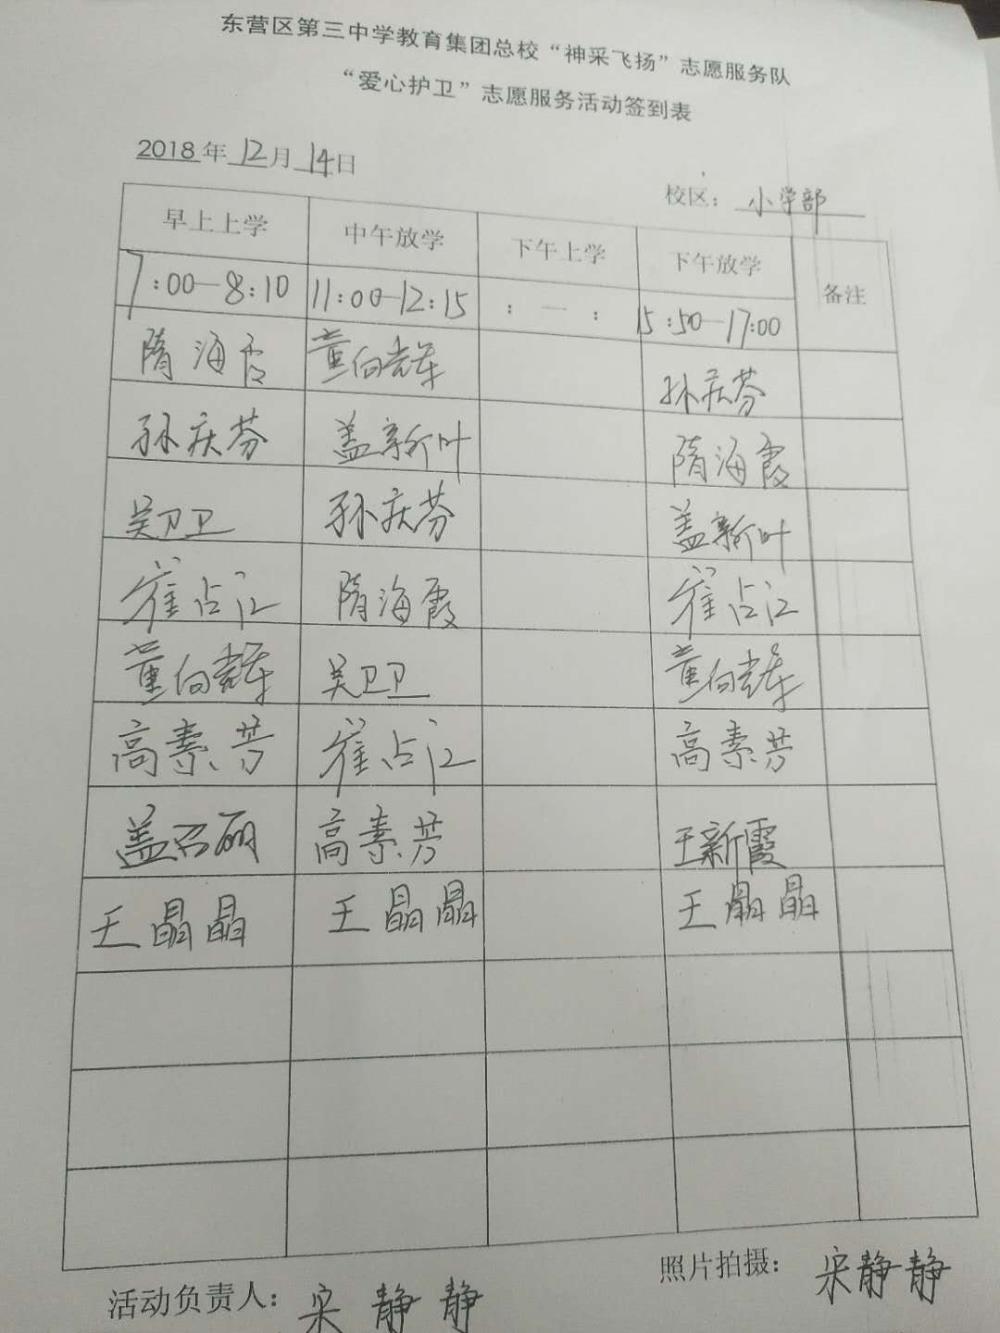 东营区第三中学教育集团总校“神采飞扬”志愿服务队
“爱心护卫”志愿服务活动签到表
2018年 12月 14日
校区： 小学部
早上上学 中午放学 下午上学 下午放学 备注
7:00—8:10 11:00-12:15 : — : 15:50—17:00
隋海霞 董向荣 孙庆芬
孙庆芬 盖新叶 隋海霞
吴卫卫 孙庆芬 盖新叶
崔占江 隋海霞 崔占江
董向荣 吴卫卫 董向荣
高素芳 崔占江 高素芳
盖召丽 高素芳 王新霞
王晶晶 王晶晶 王晶晶
活动负责人：宋静静 照片拍摄：宋静静